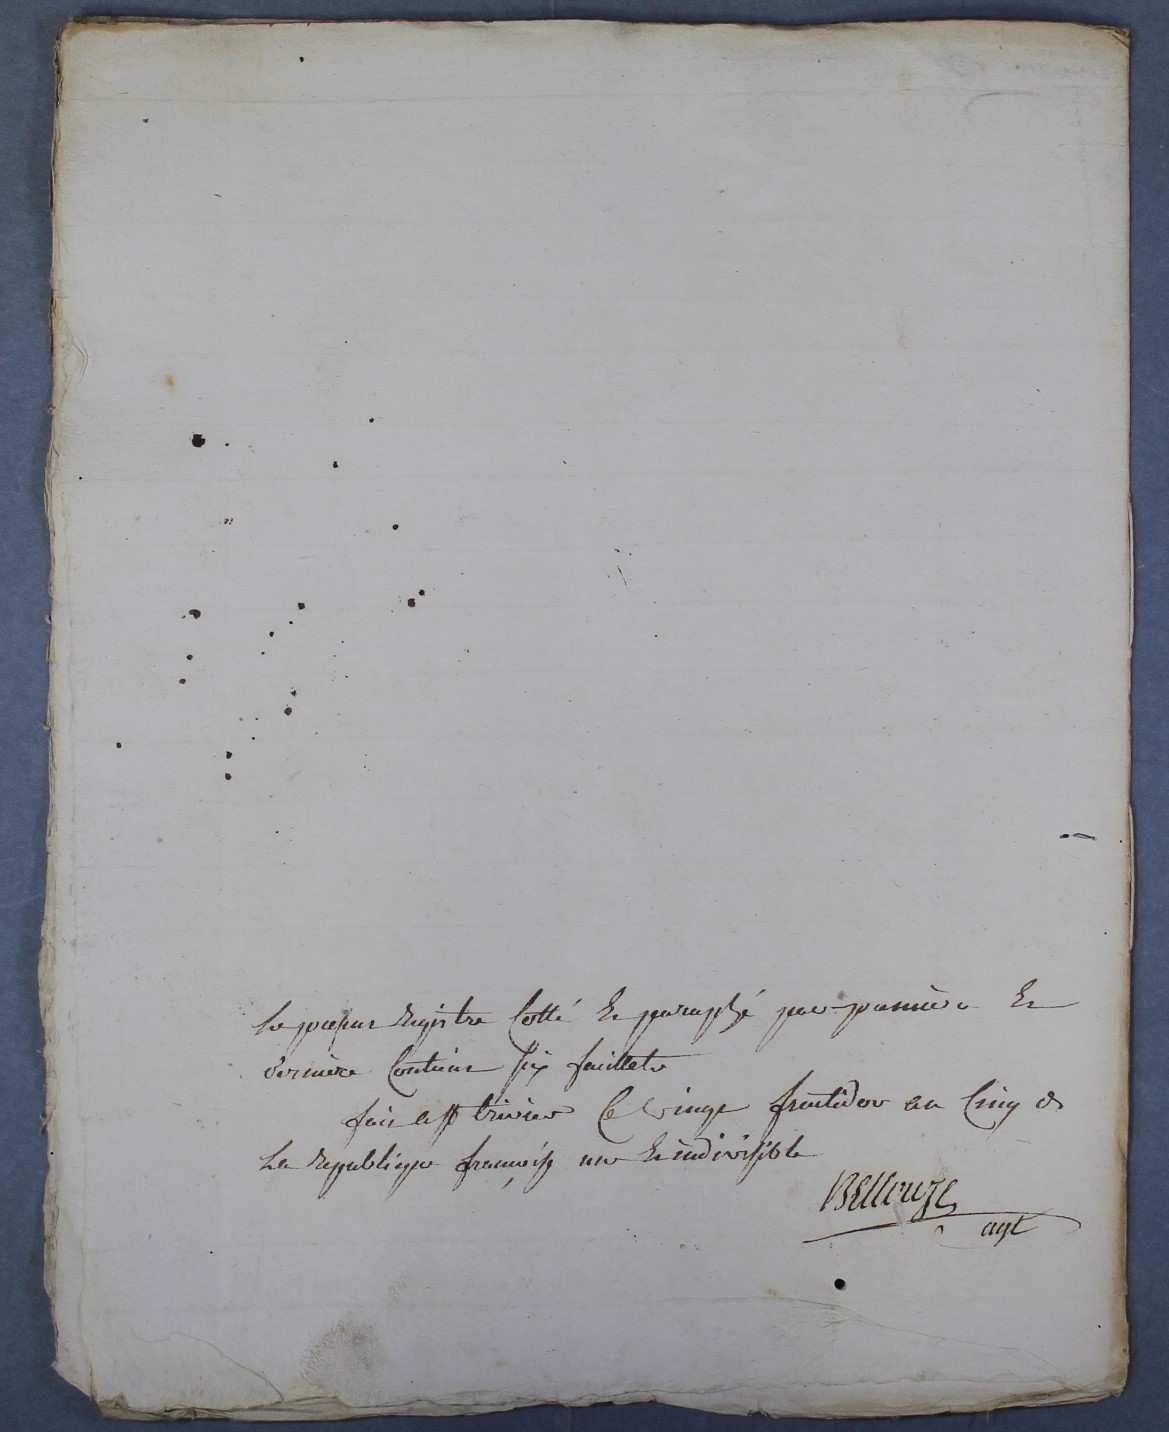 Le present Registre Cotté Et paraphé par premiere Et
derniere Contient six feuillets
fait a st trivier Ce vingt fructidor an Cinq de
La Republique francaise une Et indivisible
Bellouze
agt